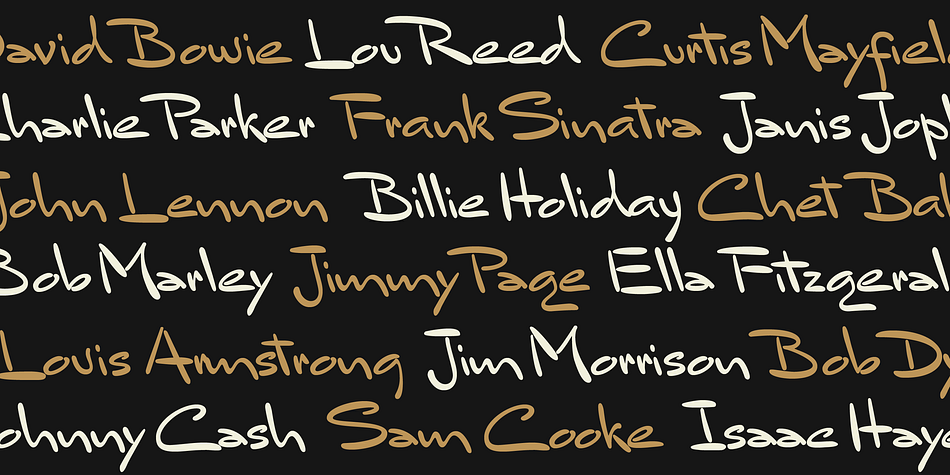 David Bowie Lou Reed Curtis Mayfiel
Charlie Parker Frank Sinatra Janis Jop
John Lennon Billie Holiday Chet Bak
Bob Marley Jimmy Page Ella Fitzgeral
Louis Armstrong Jim Morrison Bob Dy
ohnny Cash Sam Cooke Isaac Haye